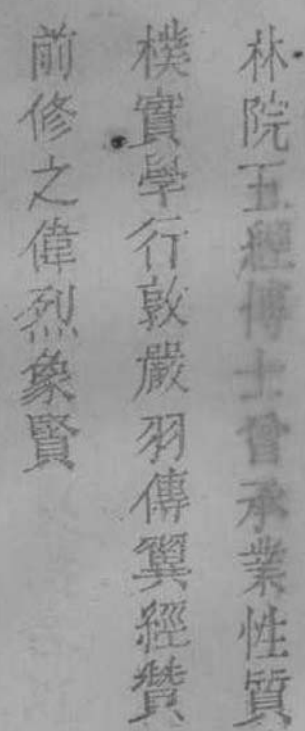 林院五經博士曾承業性質
樸實學行敦嚴羽傳翼經贊
前修之偉烈象賢